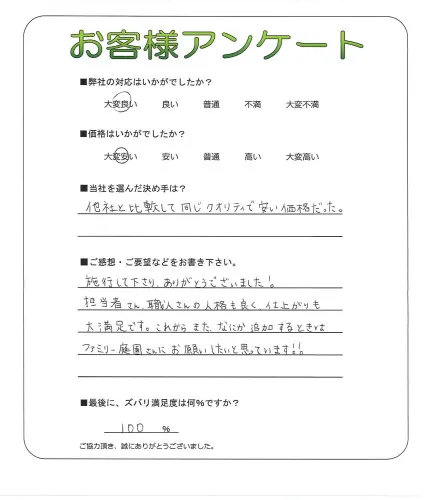 お客様アンケート
■弊社の対応はいかがでしたか？
大変良い 良い 普通 不満 大変不満
■価格はいかがでしたか？
大変安い 安い 普通 高い 大変高い
■当社を選んだ決め手は？
他社と比較して同じクオリティで安い価格だった。
■ご感想・ご要望などをお書き下さい。
施行して下さり、ありがとうございました！
担当者さん、職人さんの人格も良く、仕上がりも
大満足です。これからまた、なにか追加するときは
ファミリー庭園さんにお願いしたいと思っています!!
■最後に、ズバリ満足度は何％ですか？
100 ％
ご協力頂き、誠にありがとうございました。